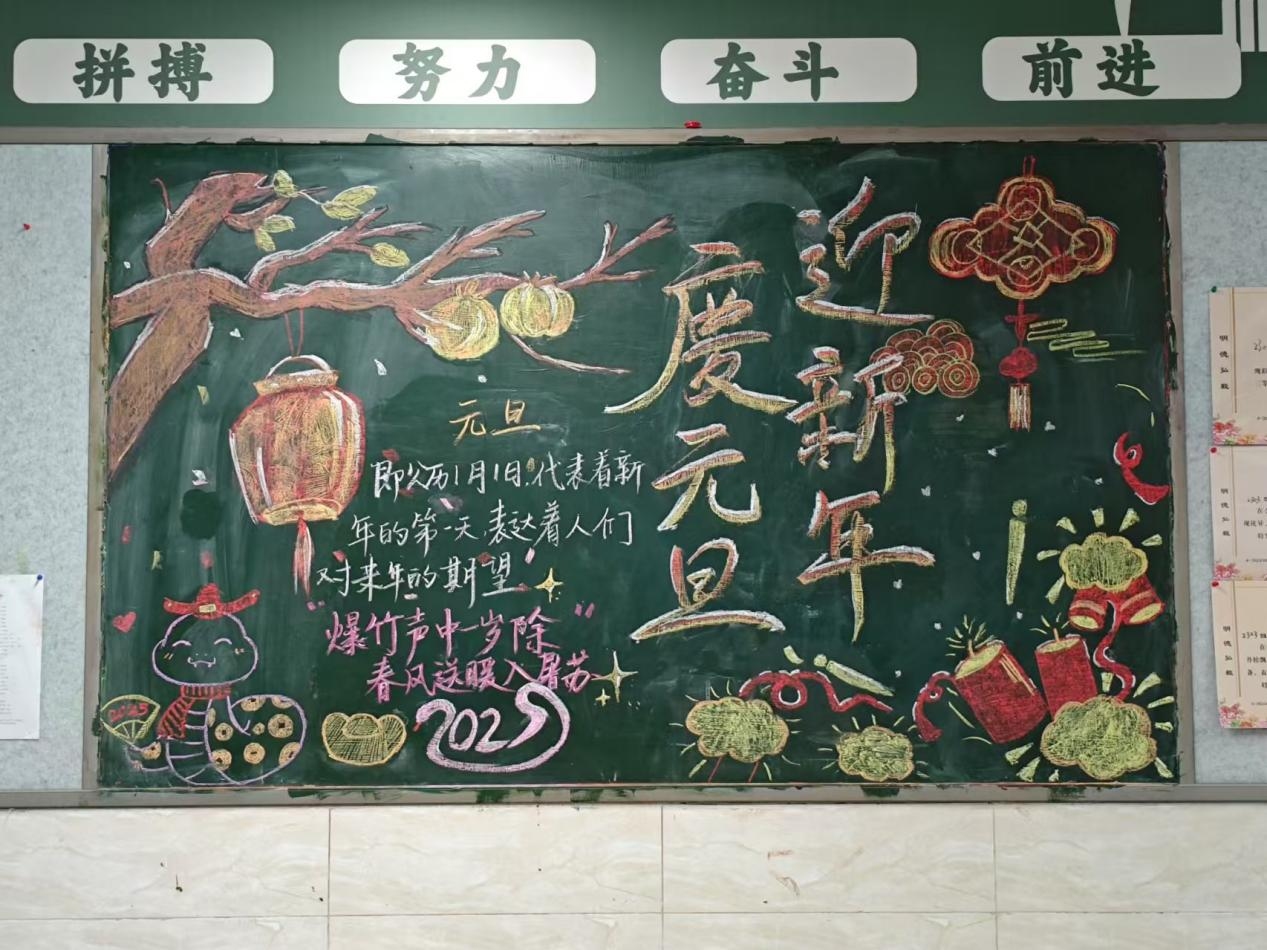 拼搏
努力
奋斗
前进
迎新年
庆元旦
元旦
即公历1月1日,代表着新
年的第一天,表达着人们
对来年的期望
“爆竹声中一岁除”
春风送暖入暑苏
2025
2025
明德弘毅
明德弘毅
明德弘毅